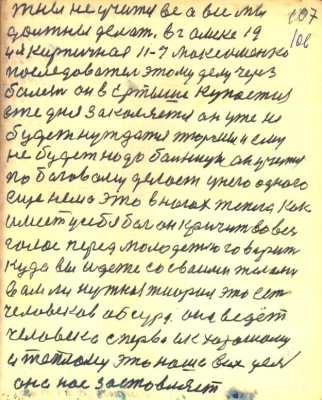 107
106
не учити ве а вы мы
должны делат. в г омске 19
кирпичная 11-7 максименко
последовател этому делу через
болезн он в Ертыше купается
дня закаляется он уже не
будет нуждатся творчии и ему
не будет надо баиннии он учится
по баговому делает у него одного
еще нема это в ногах тепла как
имеет у себя бог он кричит во вес
голос перед молодежю говорит
куда вы идете со своими телами
вам ли нужна теория это ест
человеков абсурд. она ведёт
человека сперва ик хорошому
и теплому это наша всех дела
она нас заставляет